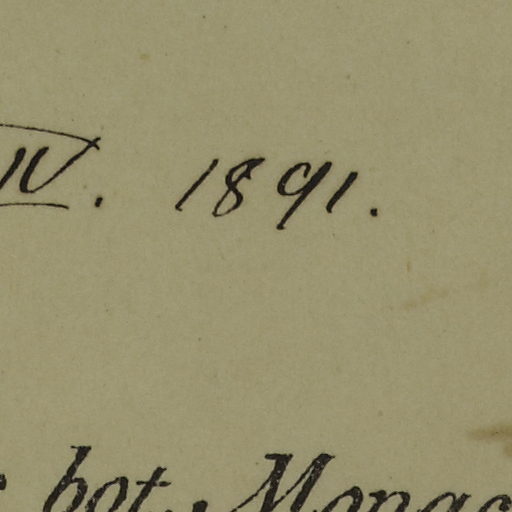 IV. 1891.
bot. Monac